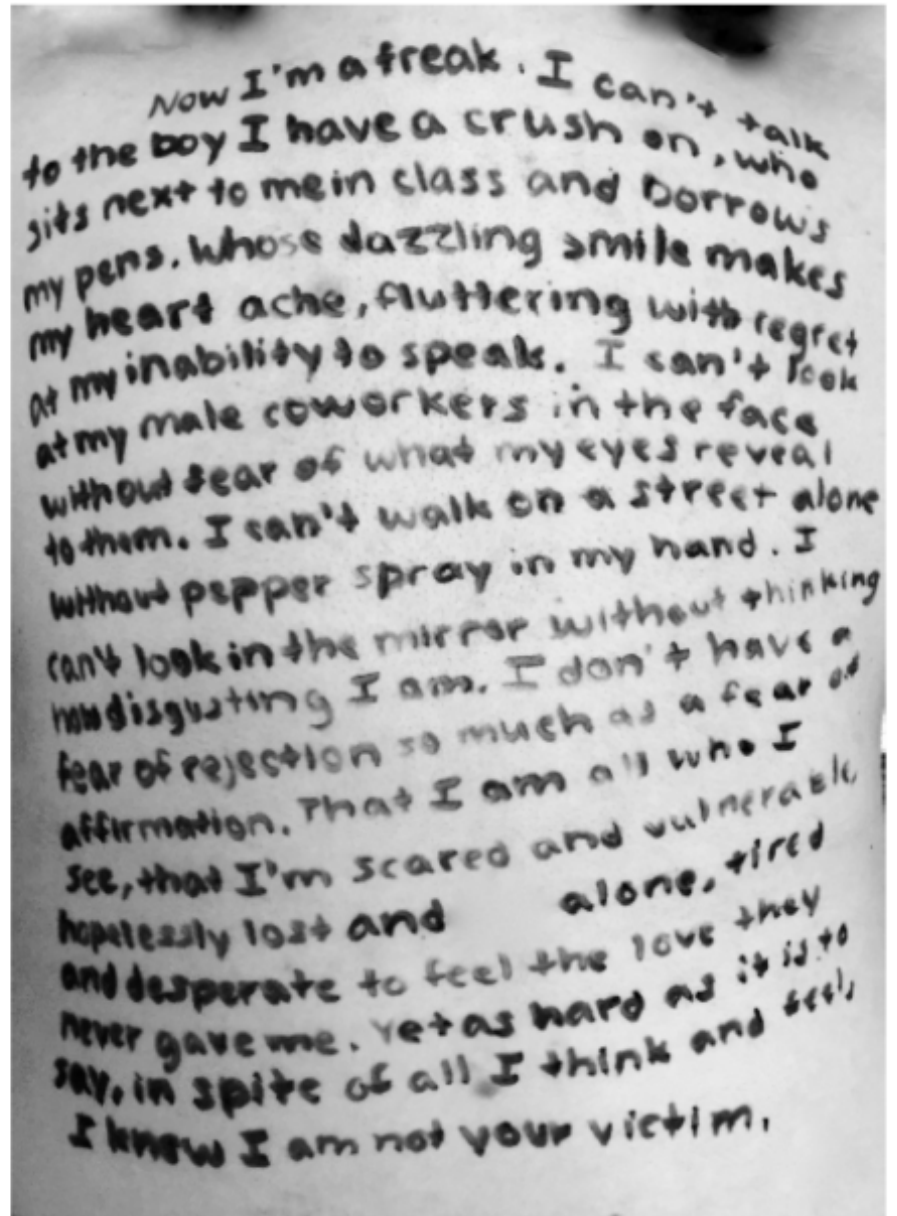 Now I'm a freak. I can't talk
to the boy I have a crush on, who
sits next to me in class and borrows
my pens. Whose dazzling smile makes
my heart ache, fluttering with regret
at my inability to speak. I can't look
at my male coworkers in the face
without fear of what my eyes reveal
to them. I can't walk on a street alone
without pepper spray in my hand. I
can't look in the mirror without thinking
how disgusting I am. I don't have a
fear of rejection so much as a fear of
affirmation. That I am all who I
see, that I'm scared and vulnerable,
hopelessly lost and alone, tired
and desperate to feel the love they
never gave me. Yet as hard as it is to
say, in spite of all I think and feel,
I know I am not your victim.